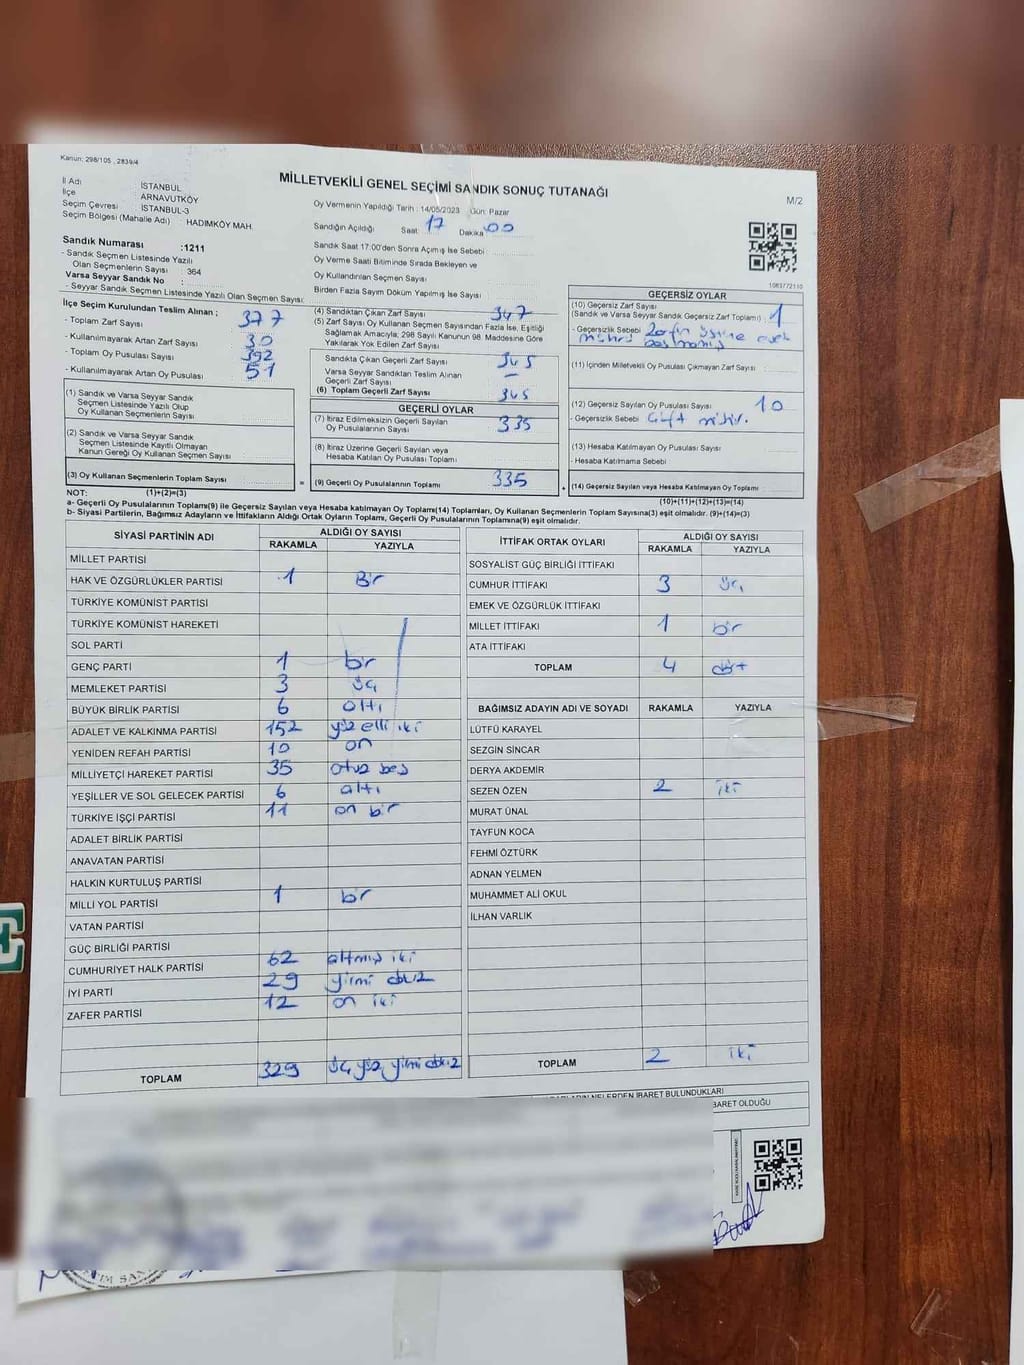 Kanun: 298/105 , 2839/4
MİLLETVEKİLİ GENEL SEÇİMİ SANDIK SONUÇ TUTANAĞI
M/2
İl Adı : İSTANBUL
İlçe : ARNAVUTKÖY
Seçim Çevresi : İSTANBUL-3
Seçim Bölgesi (Mahalle Adı) : HADIMKÖY MAH.
Sandık Numarası :1211
- Sandık Seçmen Listesinde Yazılı
Olan Seçmenlerin Sayısı : 364
Varsa Seyyar Sandık No :
- Seyyar Sandık Seçmen Listesinde Yazılı Olan Seçmen Sayısı:
Oy Vermenin Yapıldığı Tarih : 14/05/2023 Gün: Pazar
Sandığın Açıldığı Saat: 17 Dakika: 00
Sandık Saat 17:00'den Sonra Açılmış İse Sebebi :
Oy Verme Saati Bitiminde Sırada Bekleyen ve
Oy Kullandırılan Seçmen Sayısı :
Birden Fazla Sayım Döküm Yapılmış İse Sayısı :
1083772110
İlçe Seçim Kurulundan Teslim Alınan ;
- Toplam Zarf Sayısı : 377
- Kullanılmayarak Artan Zarf Sayısı : 30
- Toplam Oy Pusulası Sayısı : 392
- Kullanılmayarak Artan Oy Pusulası : 51
(1) Sandık ve Varsa Seyyar Sandık
Seçmen Listesinde Yazılı Olup
Oy Kullanan Seçmenlerin Sayısı :
(2) Sandık ve Varsa Seyyar Sandık
Seçmen Listesinde Kayıtlı Olmayan
Kanun Gereği Oy Kullanan Seçmen Sayısı :
(3) Oy Kullanan Seçmenlerin Toplam Sayısı :
(1)+(2)=(3)
(4) Sandıktan Çıkan Zarf Sayısı : 347
(5) Zarf Sayısı Oy Kullanan Seçmen Sayısından Fazla İse, Eşitliği
Sağlamak Amacıyla; 298 Sayılı Kanunun 98. Maddesine Göre
Yakılarak Yok Edilen Zarf Sayısı :
Sandıkta Çıkan Geçerli Zarf Sayısı : 345
Varsa Seyyar Sandıktan Teslim Alınan
Geçerli Zarf Sayısı : —
(6) Toplam Geçerli Zarf Sayısı : 345
GEÇERLİ OYLAR
(7) İtiraz Edilmeksizin Geçerli Sayılan
Oy Pusulalarının Sayısı : 335
(8) İtiraz Üzerine Geçerli Sayılan veya
Hesaba Katılan Oy Pusulası Toplamı :
= (9) Geçerli Oy Pusulalarının Toplamı : 335
GEÇERSİZ OYLAR
(10) Geçersiz Zarf Sayısı
(Sandık ve Varsa Seyyar Sandık Geçersiz Zarf Toplamı) : 1
- Geçersizlik Sebebi : Zarfın üzerine evet
mührü basılmamış
(11) İçinden Milletvekili Oy Pusulası Çıkmayan Zarf Sayısı :
(12) Geçersiz Sayılan Oy Pusulası Sayısı : 10
- Geçersizlik Sebebi : Çift mühür.
(13) Hesaba Katılmayan Oy Pusulası Sayısı :
- Hesaba Katılmama Sebebi :
+ (14) Geçersiz Sayılan veya Hesaba Katılmayan Oy Toplamı :
(10)+(11)+(12)+(13)=(14)
NOT:
a- Geçerli Oy Pusulalarının Toplamı(9) ile Geçersiz Sayılan veya Hesaba katılmayan Oy Toplam(14) Toplamları, Oy Kullanan Seçmenlerin Toplam Sayısına(3) eşit olmalıdır. (9)+(14)=(3)
b- Siyasi Partilerin, Bağımsız Adayların ve İttifakların Aldığı Ortak Oyların Toplamı, Geçerli Oy Pusulalarının Toplamına(9) eşit olmalıdır.
SİYASİ PARTİNİN ADI ALDIĞI OY SAYISI
RAKAMLA YAZIYLA
MİLLET PARTİSİ
HAK VE ÖZGÜRLÜKLER PARTİSİ 1 Bir
TÜRKİYE KOMÜNİST PARTİSİ
TÜRKİYE KOMÜNİST HAREKETİ
SOL PARTİ
GENÇ PARTİ 1 bir
MEMLEKET PARTİSİ 3 üç
BÜYÜK BİRLİK PARTİSİ 6 altı
ADALET VE KALKINMA PARTİSİ 152 yüz elli iki
YENİDEN REFAH PARTİSİ 10 on
MİLLİYETÇİ HAREKET PARTİSİ 35 otuz beş
YEŞİLLER VE SOL GELECEK PARTİSİ 6 altı
TÜRKİYE İŞÇİ PARTİSİ 11 on bir
ADALET BİRLİK PARTİSİ
ANAVATAN PARTİSİ
HALKIN KURTULUŞ PARTİSİ
MİLLİ YOL PARTİSİ 1 bir
VATAN PARTİSİ
GÜÇ BİRLİĞİ PARTİSİ
CUMHURİYET HALK PARTİSİ 62 altmış iki
İYİ PARTİ 29 yirmi dokuz
ZAFER PARTİSİ 12 on iki
TOPLAM 329 üç yüz yirmi dokuz
İTTİFAK ORTAK OYLARI ALDIĞI OY SAYISI
RAKAMLA YAZIYLA
SOSYALİST GÜÇ BİRLİĞİ İTTİFAKI
CUMHUR İTTİFAKI 3 üç
EMEK VE ÖZGÜRLÜK İTTİFAKI
MİLLET İTTİFAKI 1 bir
ATA İTTİFAKI
TOPLAM 4 dört
BAĞIMSIZ ADAYIN ADI VE SOYADI RAKAMLA YAZIYLA
LÜTFÜ KARAYEL
SEZGİN SİNCAR
DERYA AKDEMİR
SEZEN ÖZEN 2 iki
MURAT ÜNAL
TAYFUN KOCA
FEHMİ ÖZTÜRK
ADNAN YELMEN
MUHAMMET ALİ OKUL
İLHAN VARLIK
TOPLAM 2 iki
NELERDEN İBARET BULUNDUKLARI
BARET OLDUĞU